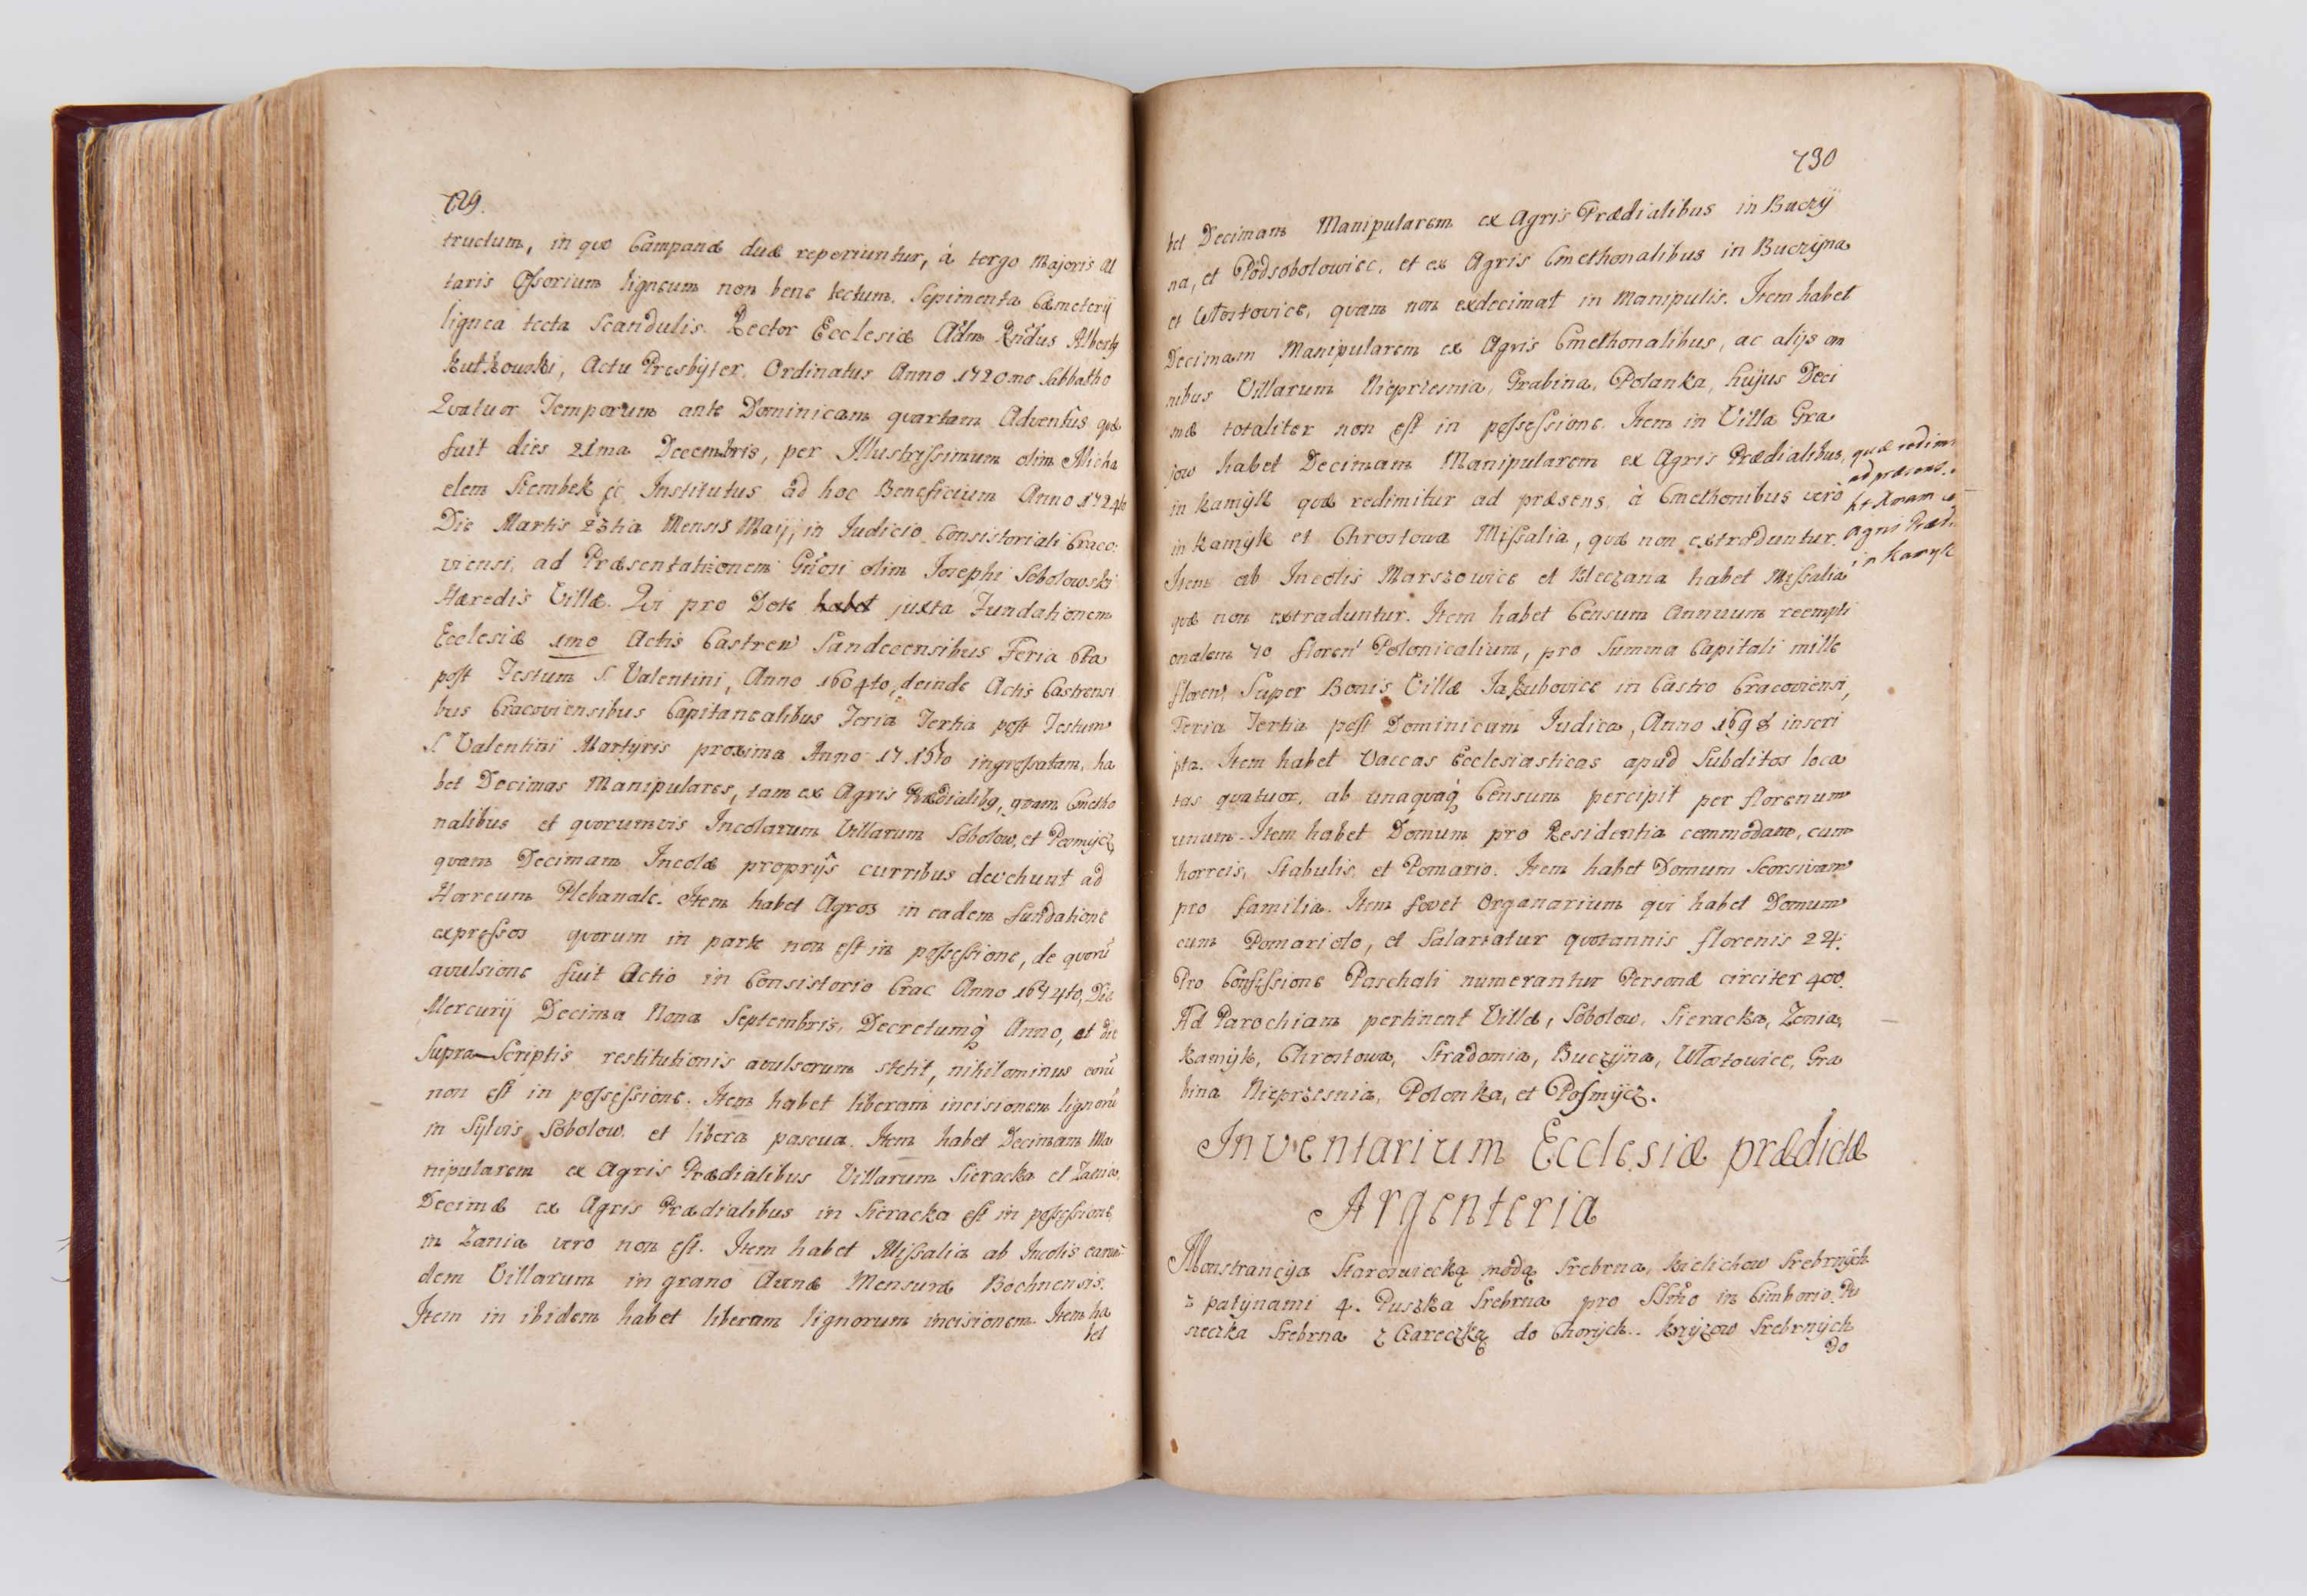 729.
tructum, in quo Campanæ duæ reperiuntur, à tergo Majoris Al
taris Ossorium ligneum non bene tectum. Sepimenta Cæmeterij
lignea tecta Scandulis. Rector Ecclesiæ Adm Rndus Albertg
Rutkowski, Actu Presbyter, Ordinatus Anno 1720mo Sabbatho
Quatuor Temporum ante Dominicam quartam Adventûs quæ
fuit dies 21ma Decembris, per Illustrissimum olim Micha
elem Szembek &c Institutus ad hoc Beneficium Anno 1724to
Die Martis 23tia Mensis Maij, in Judicio Consistoriali Craco:
viensi, ad Præsentationem Gnosi olim Josephi Sobolowski
Hæredis Villæ. Qvi pro Dote habet juxta Fundationem
Ecclesiæ 1mo Actis Castren Sandecensibus Feria 6ta
post Festum S. Valentini, Anno 1604to, deinde Actis Castrensi
bus Cracoviensibus Capitanealibus Feria Tertia post Festum
S. Valentini Martyris proxima Anno 1715to ingrossatam, ha
bet Decimas Manipulares, tam ex Agris Prædialibg, quam Cmetho
nalibus et quorumvis Incolarum Villarum Sobolow, et
quam Decimam Incolæ proprijs curribus devehunt ad
Horreum Plebanale. Item habet Agros in eadem fundatione
expressos quorum in parte non est in possessione, de quorū
avulsione fuit Actio in Consistorio Crac Anno 1674to, Die
Mercurij Decima Nona Septembris, Decretumq Anno, et die
Supra Scriptis restitutionis avulsorum stetit, nihilominus eorū
non est in possessione. Item habet liberam incisionem lignorū
in Sylvis Sobolow, et libera pascua. Item habet Decimam Ma
nipularem ex Agris Prædialibus Villarum Sieracka et Zania,
Decimæ ex Agris Prædialibus in Sieracka est in possessione,
in Zania vero non est. Item habet Missalia ab Incolis earun
dem Villarum in grano Avenæ Mensuræ Bochnensis.
Item in ibidem habet liberam lignorum incisionem. Item ha
bet
730
bet Decimam Manipularem ex Agris Prædialibus in Buczy
na, et Podsobolowiec, et ex Agris Cmethonalibus in Buczyna
et Wlostovice, quam non exdecimat in Manipulis. Item habet
Decimam Manipularem ex Agris Cmethonalibus, ac alijs om
nibus Villarum Nieprzesnia, Grabina, Polanka, hujus Deci
mæ totaliter non est in possessione. Item in Villa Gra
jow habet Decimam Manipularem ex Agris Prædialibus,
in Kamyk quæ redimitur ad præsens, à Cmethonibus verò
in Kamyk et Chrostowa Missalia, quæ non extraduntur.
quæ redim
ad præsens
Agris Præd
in Kamyk
Item ab Incolis Marszowice et Kleczana habet Missalia
quæ non extraduntur. Item habet Censum Annuum reempti
onalem 70 floren Polonicalium, pro Summa Capitali mille
floren, Super Bonis Villæ Jakubovice in Castro Cracoviensi,
Feria Tertia post Dominicam Judica, Anno 1698 inscri
pta. Item habet Vaccas Ecclesiasticas apud Subditos loca
tas quatuor, ab unaquaq Censum percipit per florenum
unum. Item habet Domum pro Residentia commodam, cum
horreis, Stabulis, et Pomario. Item habet Domum Seorsivam
pro familia. Item fovet Organarium qui habet Domum
cum Pomariolo, et Salariatur quotannis florenis 24.
Pro Confessione Paschali numerantur Personæ circiter 400.
Ad Parochiam pertinent Villæ, Sobolow, Sieracka, Zonia,
Kamyk, Chrostowa, Stradomia, Buczyna, Wlostowice, Gra
bina Nieprzesnia, Polonka, et
Inventarium Ecclesiæ prædictæ
Argenteria
Monstrancya Staroswiecką modą Srebrna, kielichow Srebrnych
z patynami 4. Puszka Srebrna pro SSmo in Cimborio. Pu
szeczka Srebrna z Czareczką do Chorych. Krzyzow Srebrnych
do